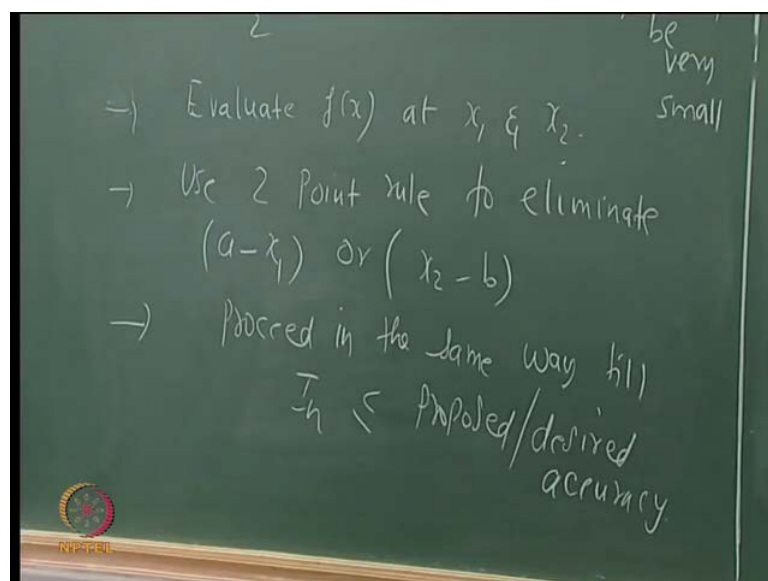 2
be
very
small
→ Evaluate f(x) at x₁ & x₂.
→ Use 2 Point rule to eliminate
(a – x₁) or (x₂ – b)
→ Proceed in the same way till
Iₙ ≤ Proposed/desired
accuracy.
NPTEL